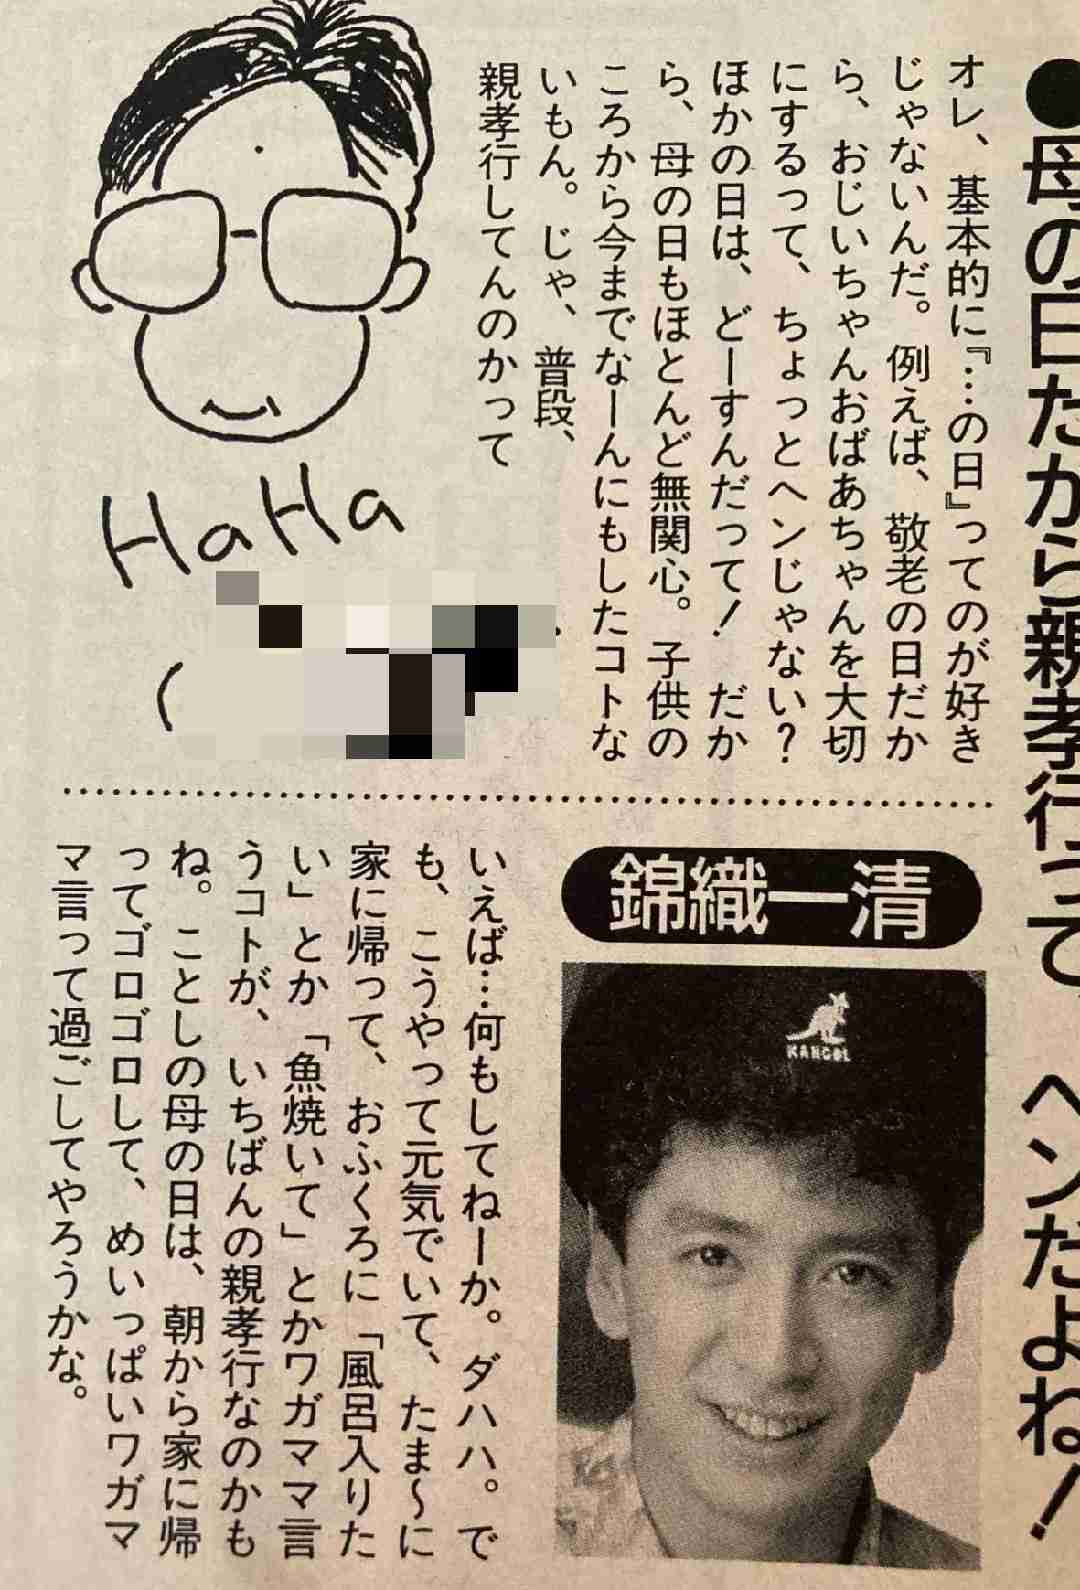 ●母の日だから親孝行って、ヘンだよね！
オレ、基本的に『…の日』ってのが好き
じゃないんだ。例えば、敬老の日だか
ら、おじいちゃんおばあちゃんを大切
にするって、ちょっとヘンじゃない？
ほかの日は、どーすんだって！　だか
ら、母の日もほとんど無関心。子供の
ころから今までなーんにもしたコトな
いもん。じゃ、普段、
親孝行してんのかって
HaHa
錦織一清
KANGOL
いえば…何もしてねーか。ダハハ。で
も、こうやって元気でいて、たま〜に
家に帰って、おふくろに「風呂入りた
い」とか「魚焼いて」とかワガママ言
うコトが、いちばんの親孝行なのかも
ね。ことしの母の日は、朝から家に帰
ってゴロゴロして、めいっぱいワガマ
マ言って過ごしてやろうかな。